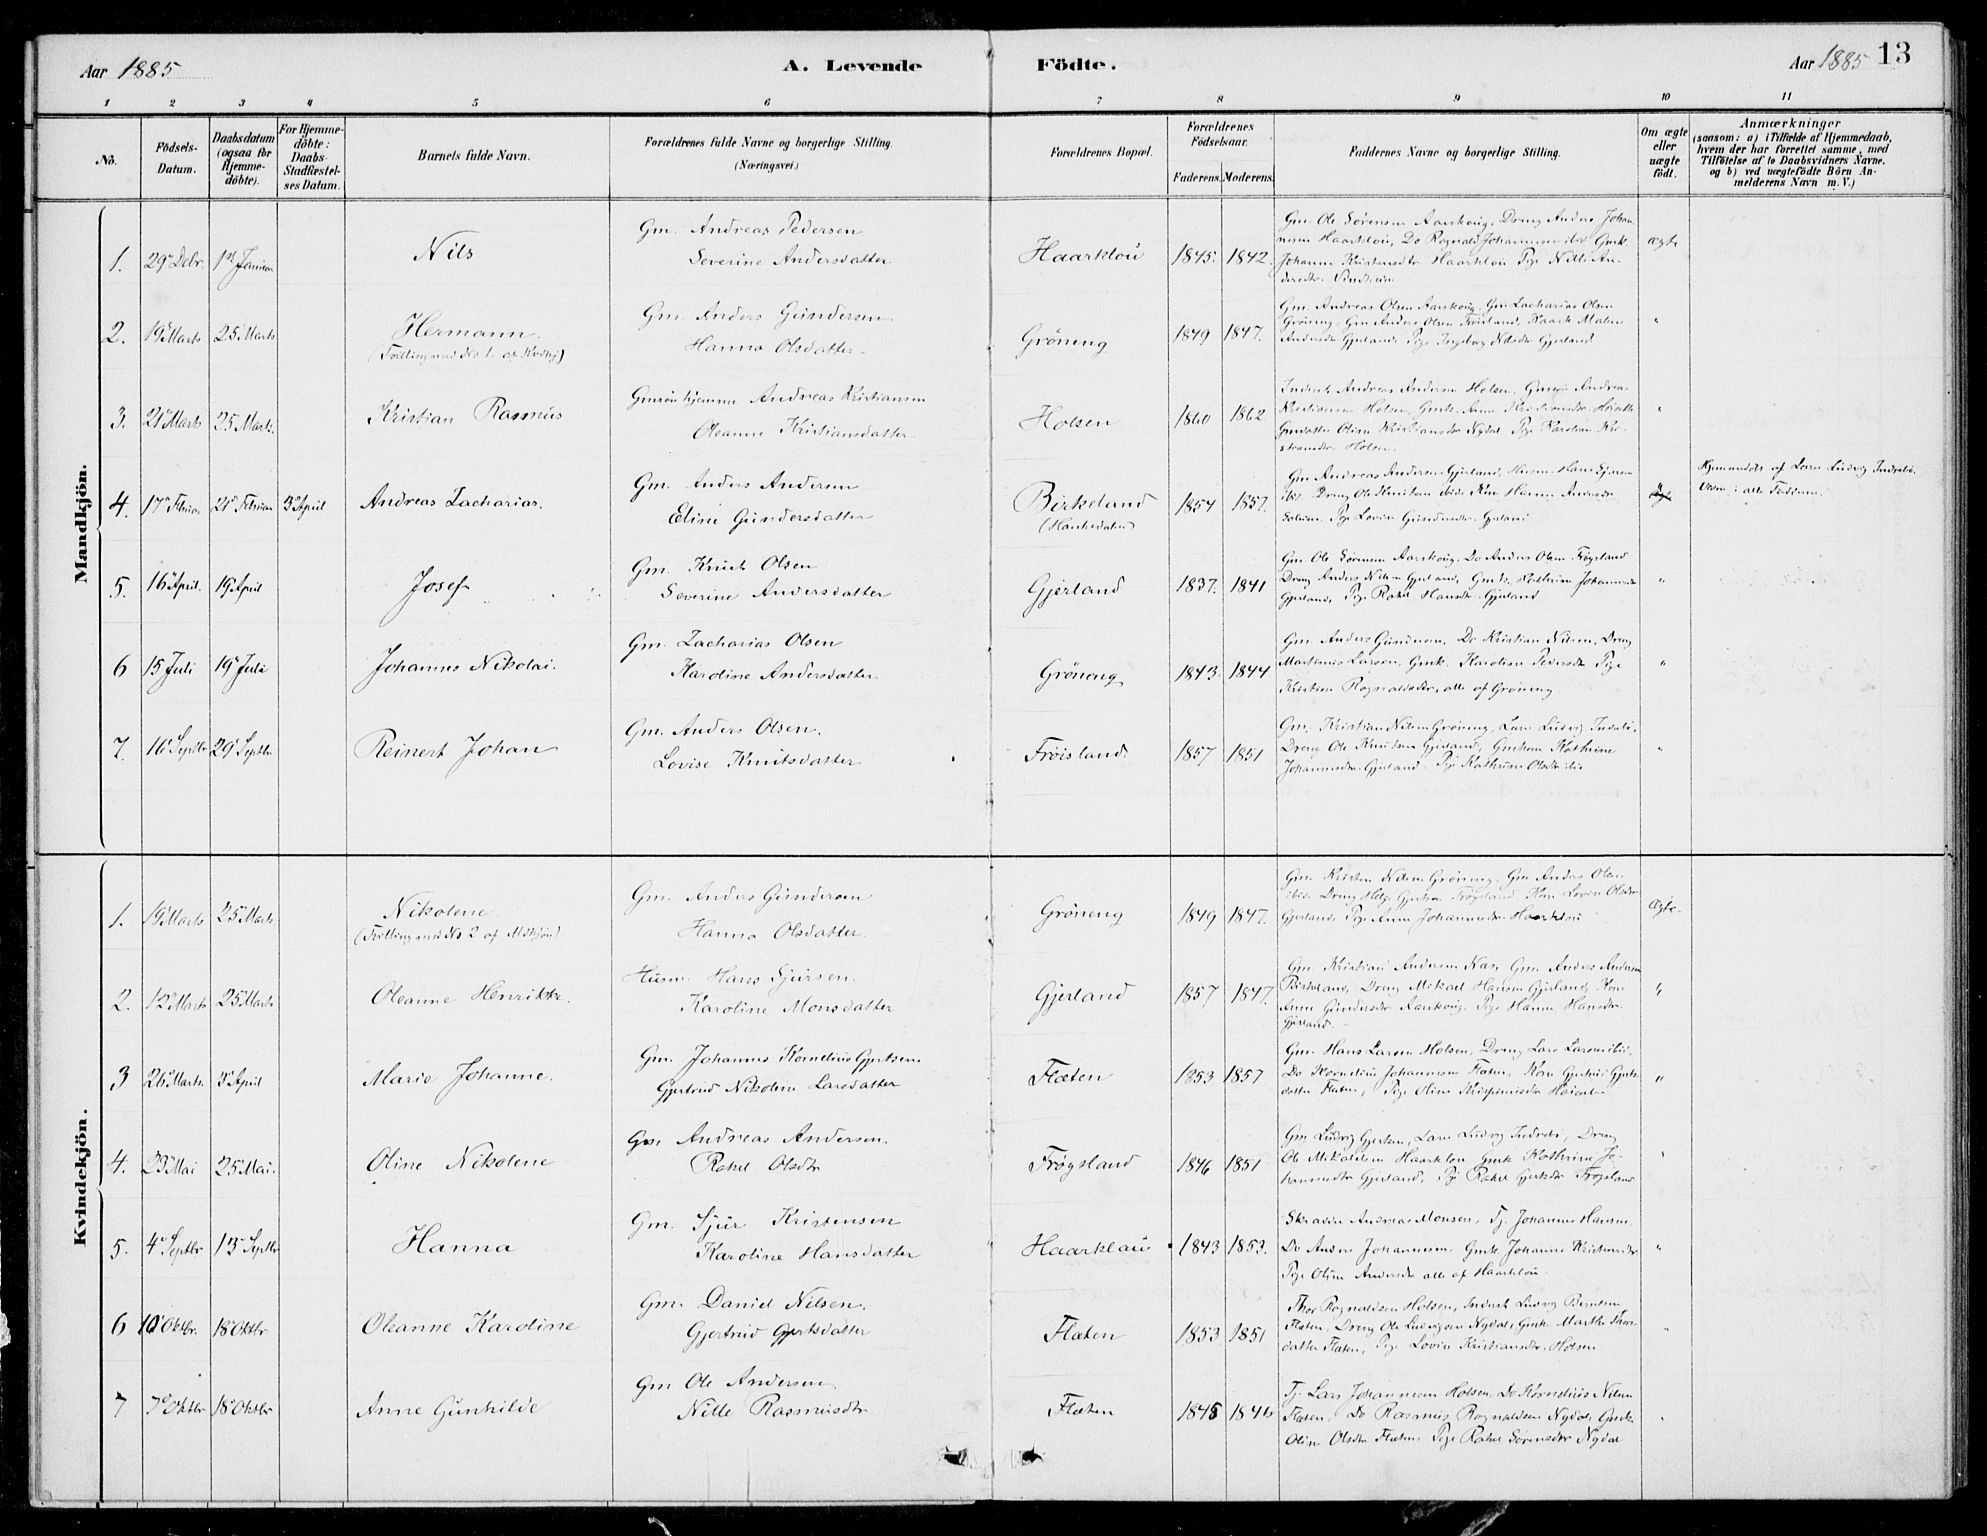 Aar 1885
A. Levende Födte.
Aar 1885 13
1 2 3 4 5 6 7 8 9 10 11
No.
Födsels-Datum.
Daabsdatum (ogsaa for Hjemme-döbte).
For Hjemme-döbte: Daabs-Stadfæstel-ses Datum.
Barnets fulde Navn.
Forældrenes fulde Navne og borgerlige Stilling.
(Næringsvei.)
Forældrenes Bopæl.
Forældrenes Födselsaar.
Faderens. Moderens.
Faddernes Navne og borgerlige Stilling.
Om ægte eller uægte födt.
Anmærkninger
(saasom: a) i Tilfælde af Hjemmedaab,
hvem der har forrettet samme, med
Tilföielse af to Daabsvidners Navne.
og b) ved uægtefödte Börn An-
melderens Navn m. V.)
Mandkjön.
1. 29 Debr. 1ste Januar Nils Gm. Andreas Pedersen
Severine Andersdatter Haarklou 1845. 1842. ægte
Gm. Ole Sörensen Aarskoug, Dreng Anders Johan-
nesen Haarklou, Do Rognald Johannesen ibid Gmk.
Johanne Kristensdtr Haarklou Pige Nille An-
dersdtr
2. 19 Marts 25 Marts Hermann. Gm. Anders Gundersen
(Tvilling med No 1. af Kvdkj) Hanna Olsdatter Gröneng 1849 1847. "
Gm. Andreas Olsen Aarskoug, Gm Zacharias Olsen
Gröneng, Gm Anders Olsen Fröisland,
Andersdtr Gjerland Pige Ingeborg Nilsdtr Gjerland
3. 21 Marts 25 Marts. Kristian Rasmus Andreas Kristiansen
Oleanne Kristiansdatter Holsen 1860 1862 "
Andreas Andersen Holsen, Andreas
Kristiansen Holsen, Gmk. Anne
Oline Kristiansdtr Nydal Pige Karoline Kri-
stiansdtr Holsen
4. 17 Februar 21 Februar 3 April Andreas Zacharias. Gm. Anders Andersen
Eline Gundersdatter Birkeland
(Haukedalen) 1854 1857. "
Gm Andreas Andersen Gjerland, Husm. Hans Sjursen
ibid. Dreng Ole Knutsen ibid Kone Hanna Andersdtr
Pige Lovise Gundersdtr Gjerland
Hjemmedöbt af Lars Ludvig Indrebö.
5. 16 April. 19 April Josef Gm. Knut Olsen
Severine Andersdatter Gjerland 1837. 1841 "
Gm. Ole Sörensen Aarskoug, Do Anders Olsen Frögsland
Dreng Anders Nilsen Gjerland, Gmk. Kathrine Johannesdtr
Gjerland, Pige Rakel Hansdtr Gjerland
6 15 Juli 19 Juli Johannes Nikolai. Gm. Zacharias Olsen
Karoline Andersdatter Gröneng 1843. 1844 "
Gm. Anders Gundersen, Do Kristian Nilsen, Dreng
Martinus Larsen, Gmk. Karoline Pedersdtr Pige
Kristine Rognaldsdtr, alle af Gröneng
7. 16 Septbr 29 Septbr Reinert Johan Gm. Anders Olsen.
Lovise Knutsdatter Fröisland. 1857 1851 "
Gm. Kristian Nilsen Gröneng, Lars Ludvig Indrebö,
Dreng Ole Knutsen Gjerland, Gmkone Kathrine
Johannesdtr Gjerland. Pige Kathrine Olsdtr ibid
Kvindekjön.
1. 19 Marts 25 Marts Nikolene Gm. Anders Gundersen
(Tvilling med No 2 af Mdkjön) Hanna Olsdatter. Gröneng 1849 1847. Ægte.
Gm. Kristen Nilsen Gröneng, Gm Anders Olsen
ibid. Dreng Helge Gjertsen Frögsland, Kone Lovise Olsdtr
Gjerland, Pige Anne Johannesdtr Haarklou
2. 12 Marts 25 Marts Oleanne Henrikke. Husm. Hans Sjursen.
Karoline Monsdatter Gjerland 1857 1847. "
Gm. Kristian Andersen Nas, Gm. Anders Andersen
Birkeland, Dreng Mikael Hansen Gjerland, Kone
Anne Gundersdtr Aarskoug, Pige Hanne Hansdtr
Gjerland.
3 26 Marts. 3 April Marie Johanne. Gm. Johannes Kornelius Gjertsen
Gjertrud Nikoline Larsdatter Flæten 1853 1857 "
Gm. Hans Larsen Holsen, Dreng Lars Larsen ibid,
Do Kornelius Johannesen Flæten, Kone Gjertrud Gjerts-
datter Flæten, Pige Oline
4. 23 Mai 25 Mai. Oline Nikolene Gm. Andreas Andersen.
Rakel Olsdtr Frögsland 1846 1851 "
Gm Ludvig Gjertsen, Lars Ludvig Indrebö, Dreng
Ole Mikalsen Haarklou Gmk Kathrine Jo-
hannesdtr Gjerland, Pige Rakel Gjertsdtr Frögsland
5. 4 Septbr 13 Septbr Hanna Gm. Sjur Kristensen
Karoline Hansdatter Haarklau 1843 1853. "
Andreas Monsen, Tj. Johannes Hansen
Do Anders Johannesen, Gmk. Johanne Kristensdtr
Pige Oline Andersdtr alle af Haarklou
6 10 Oktbr. 18 Oktbr Oleanne Karoline Gm. Daniel Nilsen.
Gjertrud Gjertsdatter Flæten 1853 1851 "
Thor Rognaldsen Holsen, Ludvig Berntsen
Flæten, Dreng Ole Ludvigsen Nydal, Gmk Marthe Thors-
datter Flæten, Pige Lovise Kristiansdtr Holsen
7 7 Oktbr 18 Oktbr Anne Gunhilde Gm Ole Andersen.
Nille Rasmusdtr Flæten 1845 1846 "
Tj. Lars Johannesen Holsen, Do Kornelius Nilsen
Flæten, Do Rasmus Rognaldsen Nydal, Gmk.
Oline Olsdtr Flæten, Pige Rakel Sörensdtr Nydal